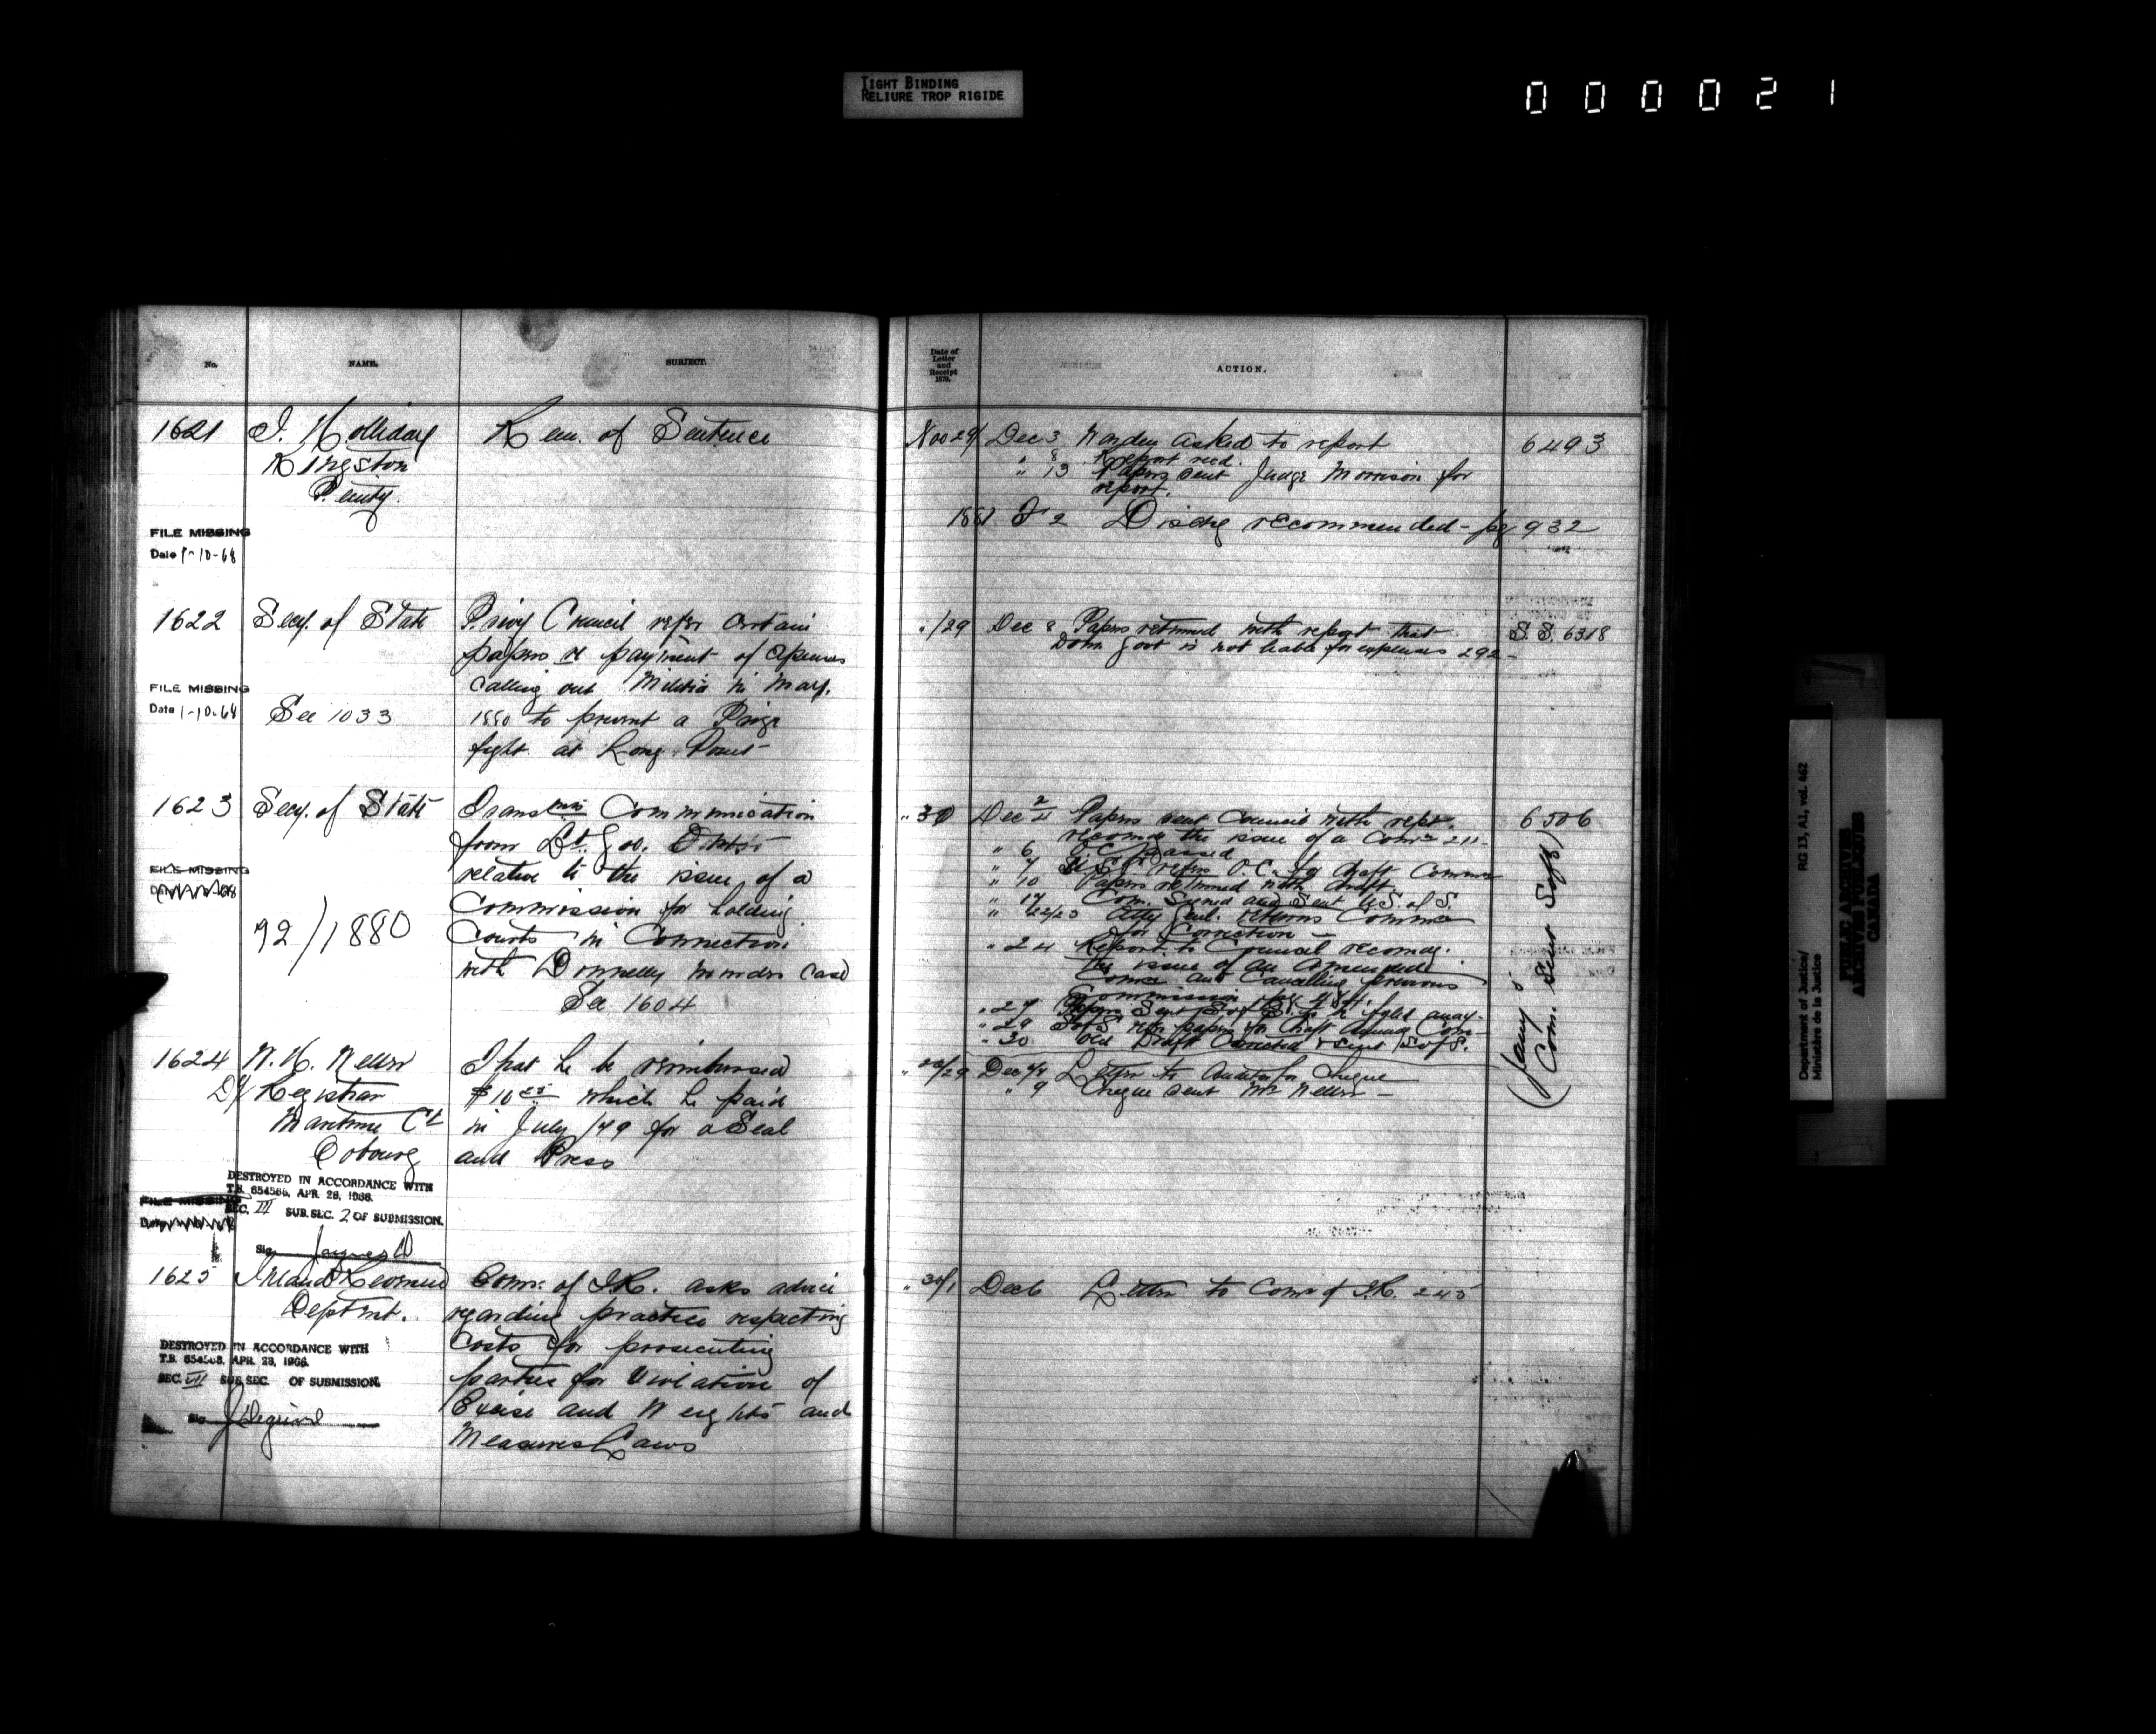 TIGHT BINDING
RELIURE TROP RIGIDE
000021
No.
NAME.
SUBJECT.
1621
J. Holliday
Rem. of Sentence
Kingston
Penity.
FILE MISSING
Date 1-10-68
1622
Secy. of State
Privy Council refer certain
papers re payment of expenses
calling out Militia in May.
1880 to prevent a Prize
fight at Long Point
FILE MISSING
Date 1-10-68
See 1033
1623
Secy. of State
Transmits Communication
from Lt. Gov. Ontario
relative to the issue of a
Commission for holding
Courts in Connection
with Donnelly murders case
See 1604
FILE MISSING
92/1880
1624
W. H. Weller
Dy Registrar
Maritime Ct
Cobourg
That he be reimbursed
$10 25 which he paid
in July /79 for a Seal
and Press
DESTROYED IN ACCORDANCE WITH
T.B. 654566, APR. 28, 1966.
SEC. III SUB. SEC. 2 OF SUBMISSION.
FILE MISSING
Sig.
1625
Inland Revenue
Deptmt.
Comr. of I.R. asks advice
regarding practice respecting
costs for prosecuting
parties for violation of
Excise and Weights and
Measures Laws
DESTROYED IN ACCORDANCE WITH
T.B. 654566, APR. 28, 1966.
SEC. VII SUB. SEC. OF SUBMISSION.
Sig
Date of
Letter
and
Receipt
1879.
ACTION.
Nov 29/ Dec 3 Warden asked to report
6493
" 8 Report recd.
" 13 Papers sent Judge Morrison for
report.
1881 Disch recommended - pg 932
" /29 Dec 8 Papers returned with report that
Dom. Govt is not liable for expenses 292 -
S.S. 6318
" 30 Dec 2/4 Papers sent Council with rept.
6506
recomdg the issue of a Comn 211-
" 6 O.C. passed
" 7 refers O.C. for draft Commn
" 10 Papers returned with draft.
" 17 Com. Signed and Sent U.S. of S.
" 22/23 Atty Genl. returns Commn
for Correction -
" 24 Report to Council recomdg.
the issue of an Amended
Comn and Cancelling previous
Commission
" 27 Papers Sent S. of S.
" 29 S of S papers for draft Com
" 30 Draft Corrected & sent S of S.
(Jany 5 Com. sent S of S)
Letter to Auditor for Cheque
" 9 Cheque sent Mr Weller -
" 30/1 Dec 6 Letter to Comr of I.R. 245
Department of Justice/
Ministère de la Justice
RG 13, A1, vol. 462
PUBLIC ARCHIVES
ARCHIVES PUBLIQUES
CANADA